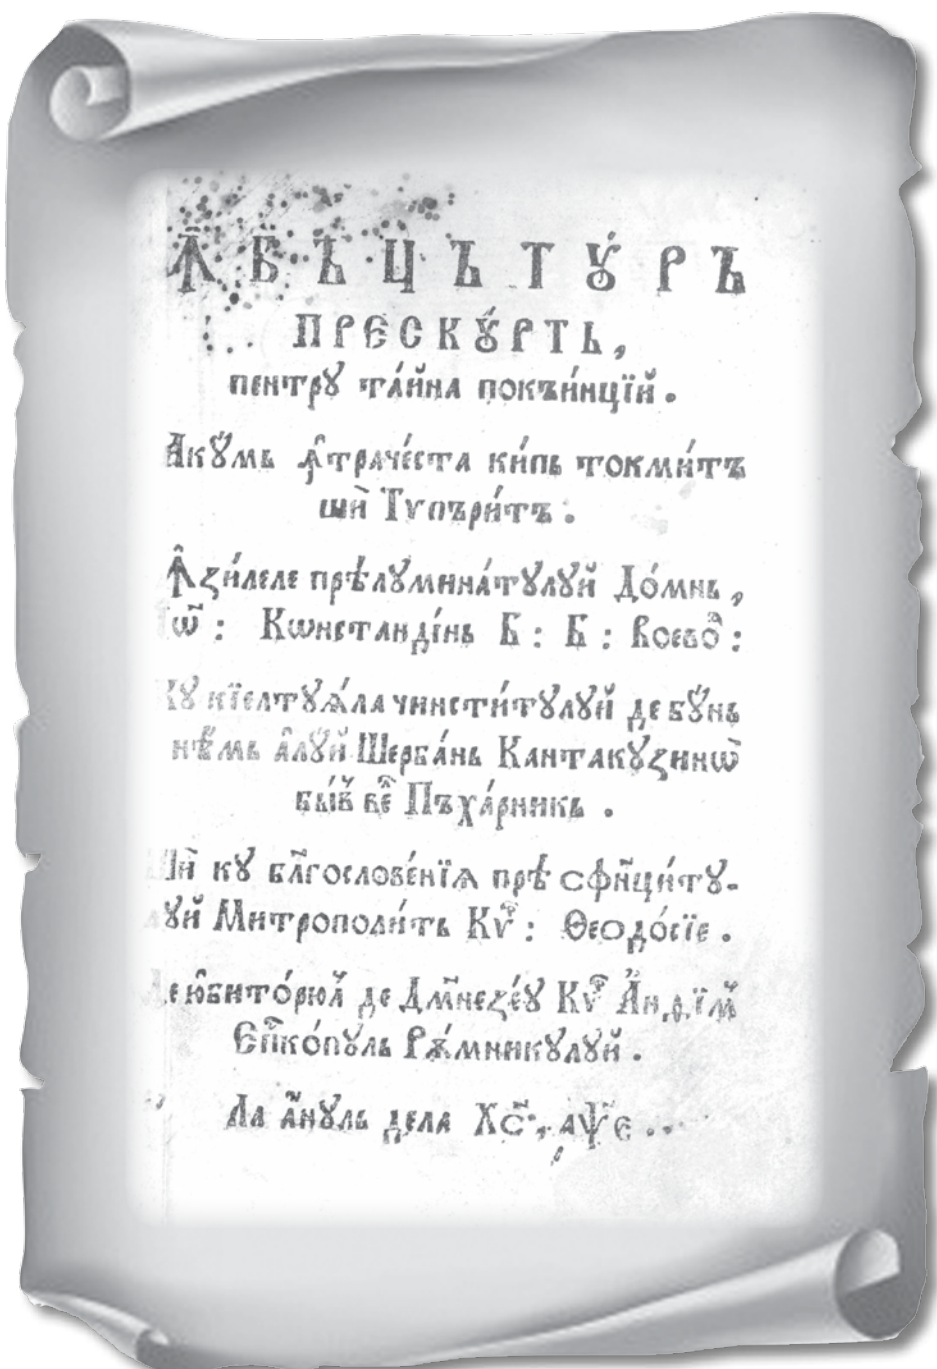 Ꙟ҆ВЪЦЪТꙊ́РЪ
ПРЕСКꙊ́РТЬ,
пентрꙋ та́йна покъи́нцїй.
Акꙋ́мь ꙟ҆траче́ста ки́пь токми́тъ
шѝ Тѵпъри́тъ:
Ꙟ҆зи́леле прѣлꙋмина́тꙋлꙋй До́мнь,
Іѡ҃: Кѡнстанді́нь Б: Б: Воево́д:
Кꙋ кїелтꙋѧ́ла чинсти́тꙋлꙋй де бꙋ́нь
нѣ́мь алꙋ́й Шерба́нь Кантакꙋзинѡ̀
бы́в ве́л Пъха́рникь.
Шѝ кꙋ бл҃гослове́нїѧ прѣ сфн҃ци́тꙋ-
лꙋй Митрополи́ть Кѵ҃р: Ѳеодо́сїе.
Де ю҆бито́рюл де Дм҃незе́ꙋ Кѵ҃р А҆нѳїм
Єп҃ско́пꙋль Рѫ́мникꙋлꙋй.
Ла а҆нꙋль дела Хс҃:, ҂аѱ҃е..